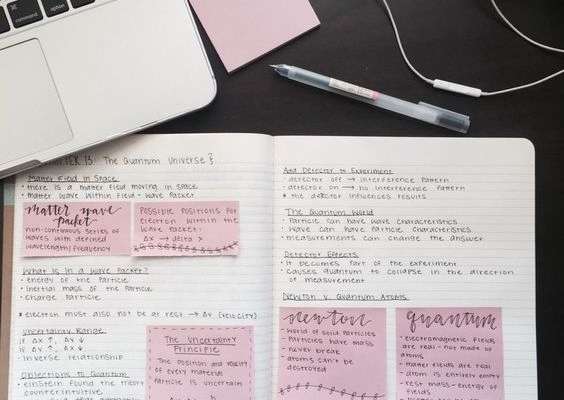 command
option
TER 13. The Quantum Universe
Matter Field in Space
• there is a matter field moving in space
• matter wave within field - wave packet
matter wave
packet
non-continuous series of
waves with defined
wavelength/frequency
possible positions for
electron within the
wave packet:
Δx → delta x
What is in a wave packet?
• energy of the particle
• inertial mass of the particle
• charge particle
* electron must also not be at rest → Δv (velocity)
Uncertainty Range
if Δx ↑, Δv ↓
if Δv ↑, Δx ↓
- inverse relationship
Objections to Quantum
• Einstein found the theory
counterintuitive
The Uncertainty
Principle
The position and velocity
of every material
particle is uncertain
Add Detector to Experiment
• detector off → interference pattern
• detector on → no interference pattern
* the detector influences results
The Quantum World
• Particle can have wave characteristics
• Wave can have particle characteristics
• measurements can change the answer
Detector Effects
• It becomes part of the experiment
• causes quantum to collapse in the direction
of measurement
Newton v. Quantum Atoms
newton
• World of solid particles
• Particles have mass
• never break
• atoms can't be
destroyed
quantum
• electromagnetic fields
are real - not made of
atoms
• matter fields are real
• atom is entirely empty
• rest mass - energy of
fields